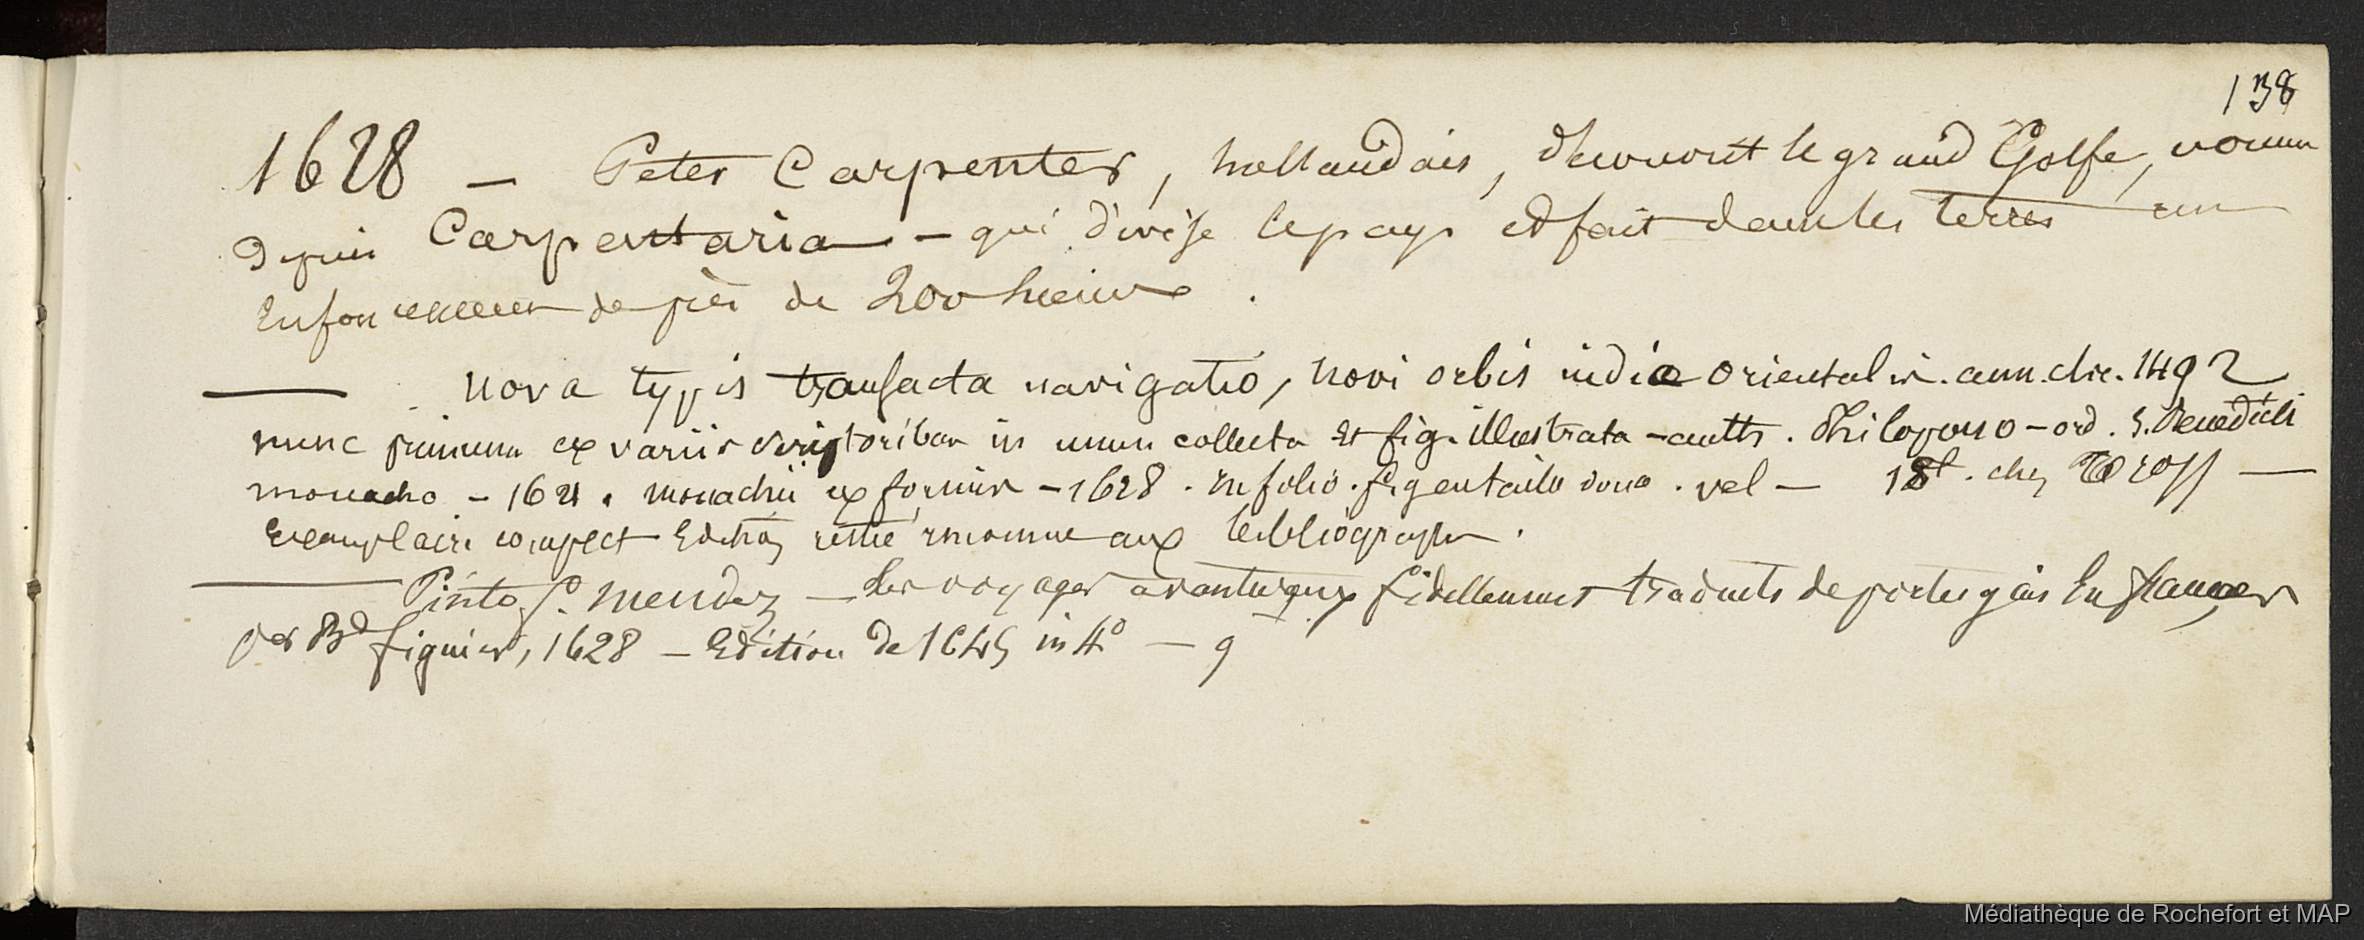 138
1628 — Peter Carpenter, hollandais, découvrit le grand Golfe, nommé
depuis Carpentaria — qui divise le pays et fait dans les terres un
Enfoncement de près de 200 lieues.
— Nova typis transacta navigatio, novi orbis indiæ orientalis. ann. chr. 1492
nunc primum ex variis scriptoribus in unum collecta et fig. illustrata — auth. Philopono — ord. S. Benedicti
monacho — 1621. monachii — 1628. in folio. fig en taille douce. vel — 18f. chez Tross —
exemplaire Edition restée inconnue aux bibliographes.
— Pinto f. mendez — les voyages avantureux fidellement traduits de portugais En françois
par Bd figuier, 1628 — Edition de 1645 in 4° — 9
Médiathèque de Rochefort et MAP